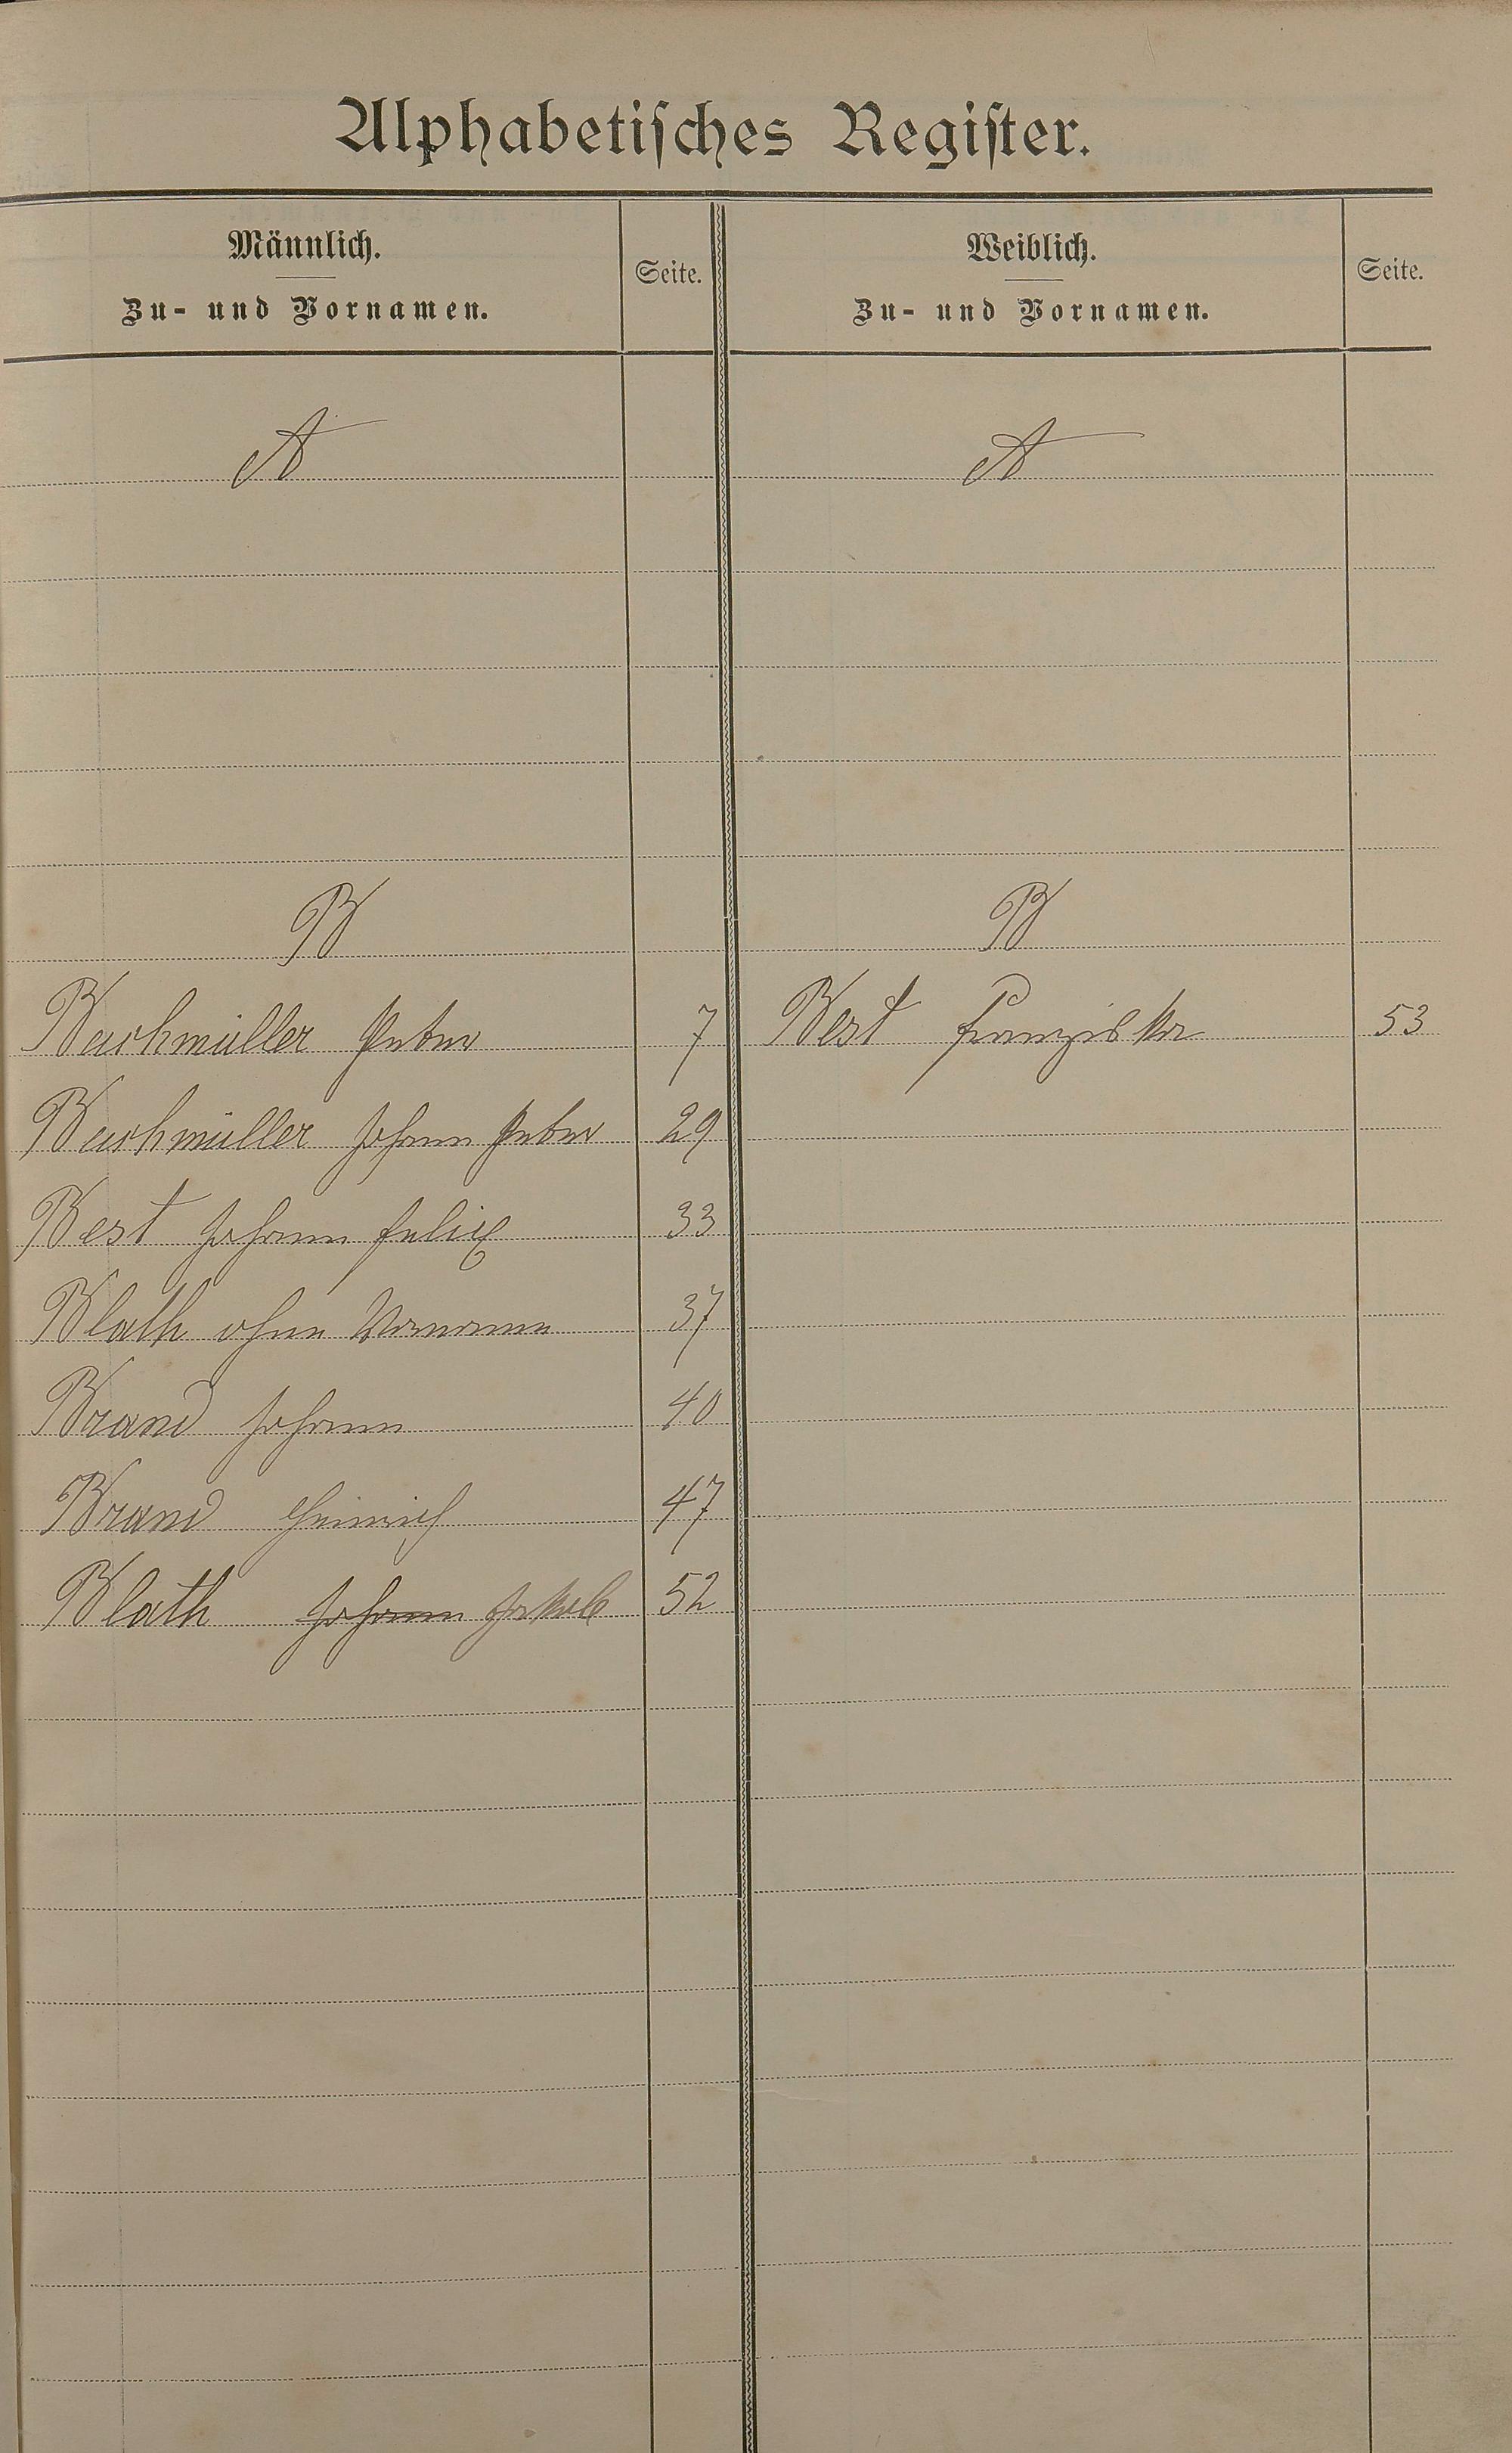 Alphabetisches Register.
Männlich.
Zu- und Vornamen.
Seite.
Weiblich.
Zu- und Vornamen.
Seite.
A
A
B
B
Bachmüller Peter 7
Best Franziska 53
Bachmüller Johann Peter 29
Best Johann Felix 33
Blath ohne Vornamen 37
Brand Johann 40
Brand Heinrich 47
Blath Johann Jakob 52